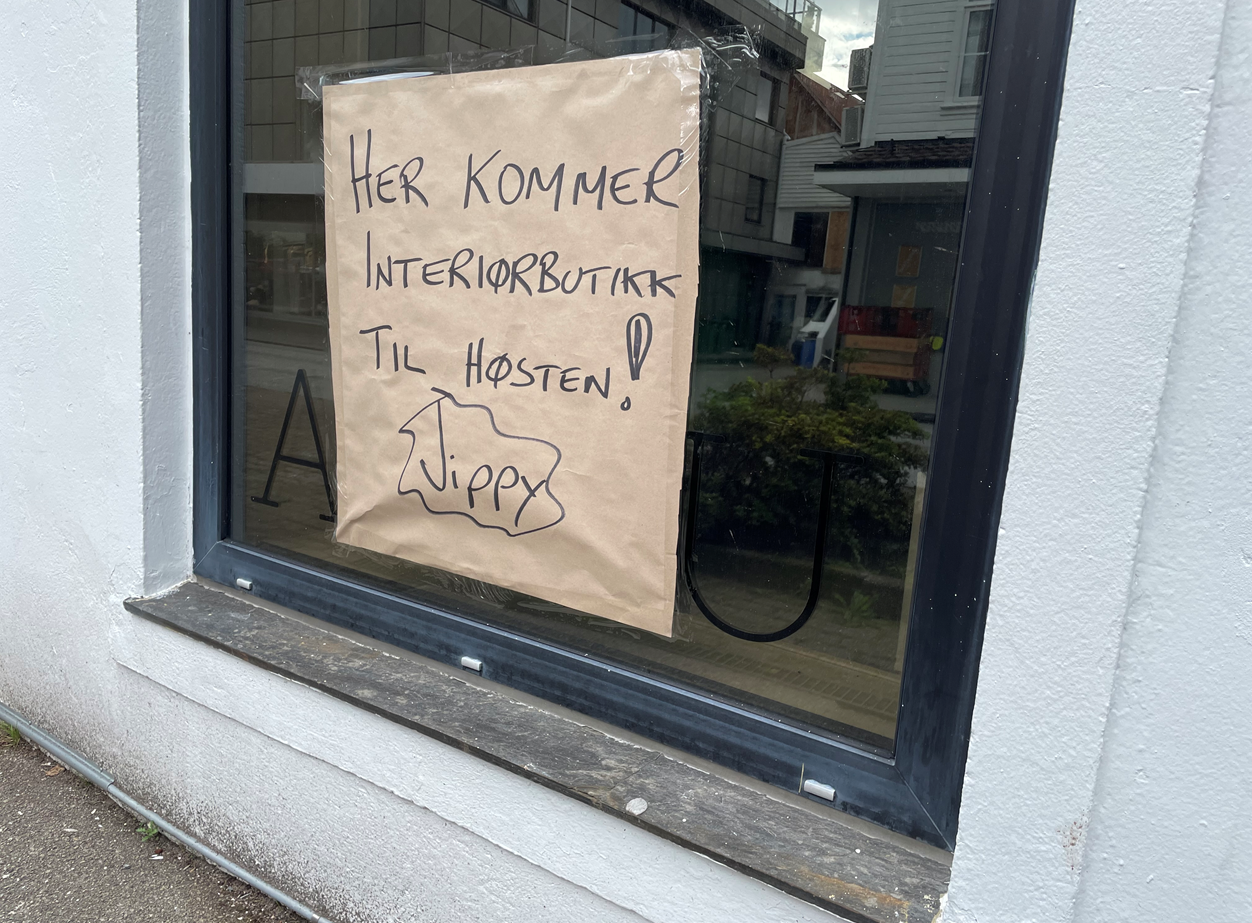 HER KOMMER
INTERIØRBUTIKK
TIL HØSTEN!
Jippy
A
U